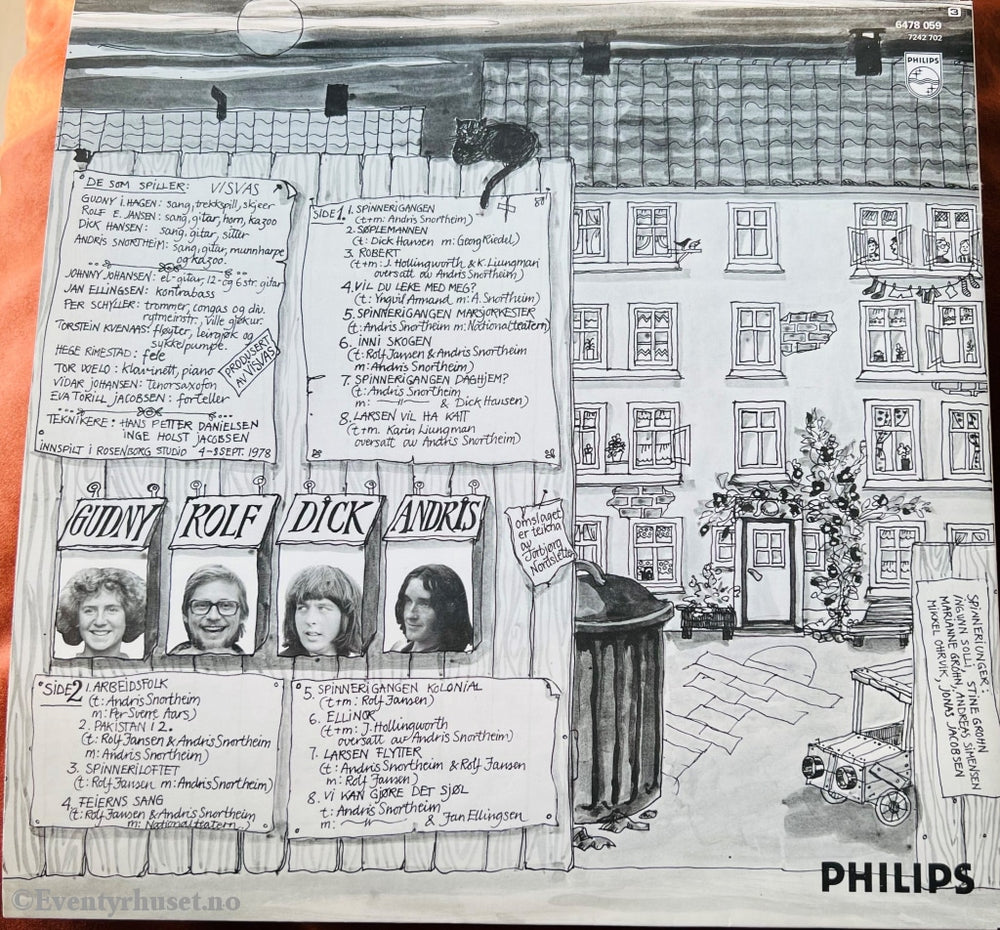 3
6478 059
7242 702
PHILIPS
DE SOM SPILLER: VISVAS
GUDNY I. HAGEN: sang, trekkspill, skjeer
ROLF E. JANSEN: sang, gitar, horn, kazoo
DICK HANSEN: sang, gitar, sitter
ANDRIS SNORTHEIM: sang, gitar, munnharpe
og kazoo.
JOHNNY JOHANSEN: el-gitar, 12- og 6 str. gitar
JAN ELLINGSEN: kontrabass
PER SCHYLLER: trommer, congas og div.
rytmeinstr., ville gjøkur.
TORSTEIN KVENAAS: fløyter, leirgjøk og
sykkelpumpe.
HEGE RIMESTAD: fele
TOR WELO: klarinett, piano
VIDAR JOHANSEN: Tenorsaxofon
EVA TORILL JACOBSEN: forteller
PRODUSERT
AV VISVAS
TEKNIKERE: HANS PETTER DANIELSEN
INGE HOLST JACOBSEN
INNSPILT I ROSENBORG STUDIO 4-9 SEPT. 1978
SIDE 1.
1. SPINNERIGANGEN
(t+m: Andris Snortheim)
2. SØPLEMANNEN
(t: Dick Hansen m: Georg Riedel)
3. ROBERT
(t+m: J. Hollingworth & K. Liungman
oversatt av Andris Snortheim)
4. VIL DU LEKE MED MEG?
(t: Yngvil Armand m: A. Snortheim)
5. SPINNERIGANGEN MARSJORKESTER
(t: Andris Snortheim m: Nationalteatern)
6. INNI SKOGEN
(t: Rolf Jansen & Andris Snortheim
m: Andris Snortheim)
7. SPINNERIGANGEN DAGHJEM?
(t: Andris Snortheim
m: —"— & Dick Hansen)
8. LARSEN VIL HA KATT
(t+m: Karin Liungman
oversatt av Andris Snortheim)
GUDNY
ROLF
DICK
ANDRIS
omslaget
er teikna
av
Torbjørg
Nordsletten
SIDE 2
1. ARBEIDSFOLK
(t: Andris Snortheim
m: Per Sverre Aars)
2. PAKISTAN I 2.
(t: Rolf Jansen & Andris Snortheim
m: Andris Snortheim)
3. SPINNERILOFTET
(t: Rolf Jansen m: Andris Snortheim)
4. FEIERNS SANG
(t: Rolf Jansen & Andris Snortheim
m: Nationalteatern)
5. SPINNERIGANGEN KOLONIAL
(t+m: Rolf Jansen)
6. ELLINOR
(t+m: J. Hollingworth
oversatt av Andris Snortheim)
7. LARSEN FLYTTER
(t: Andris Snortheim & Rolf Jansen
m: Rolf Jansen)
8. VI KAN GJØRE DET SJØL
t: Andris Snortheim
m: —"— & Jan Ellingsen
SPINNERIUNGER:
INGUNN SOLLI, STINE GRØHN
MARIANNE GRØHN, ANDREAS SIMENSEN
MIKKEL OHRVIK, JONAS JACOBSEN
PHILIPS
©Eventyrhuset.no